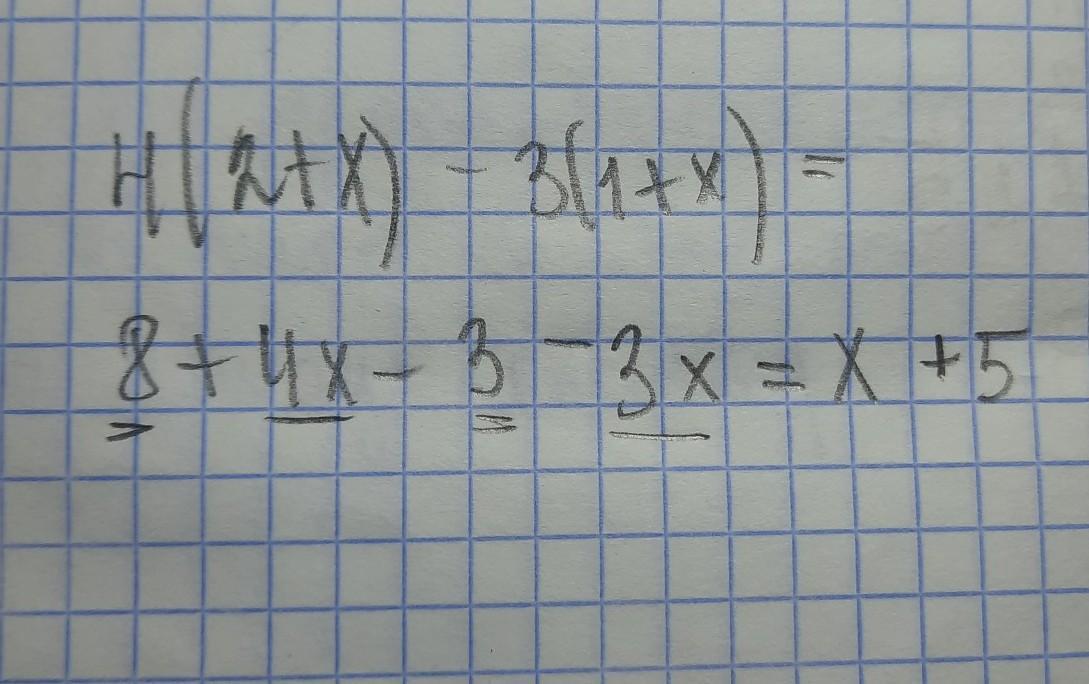 4(2+x) - 3(1+x) =
8 + 4x - 3 - 3x = x + 5